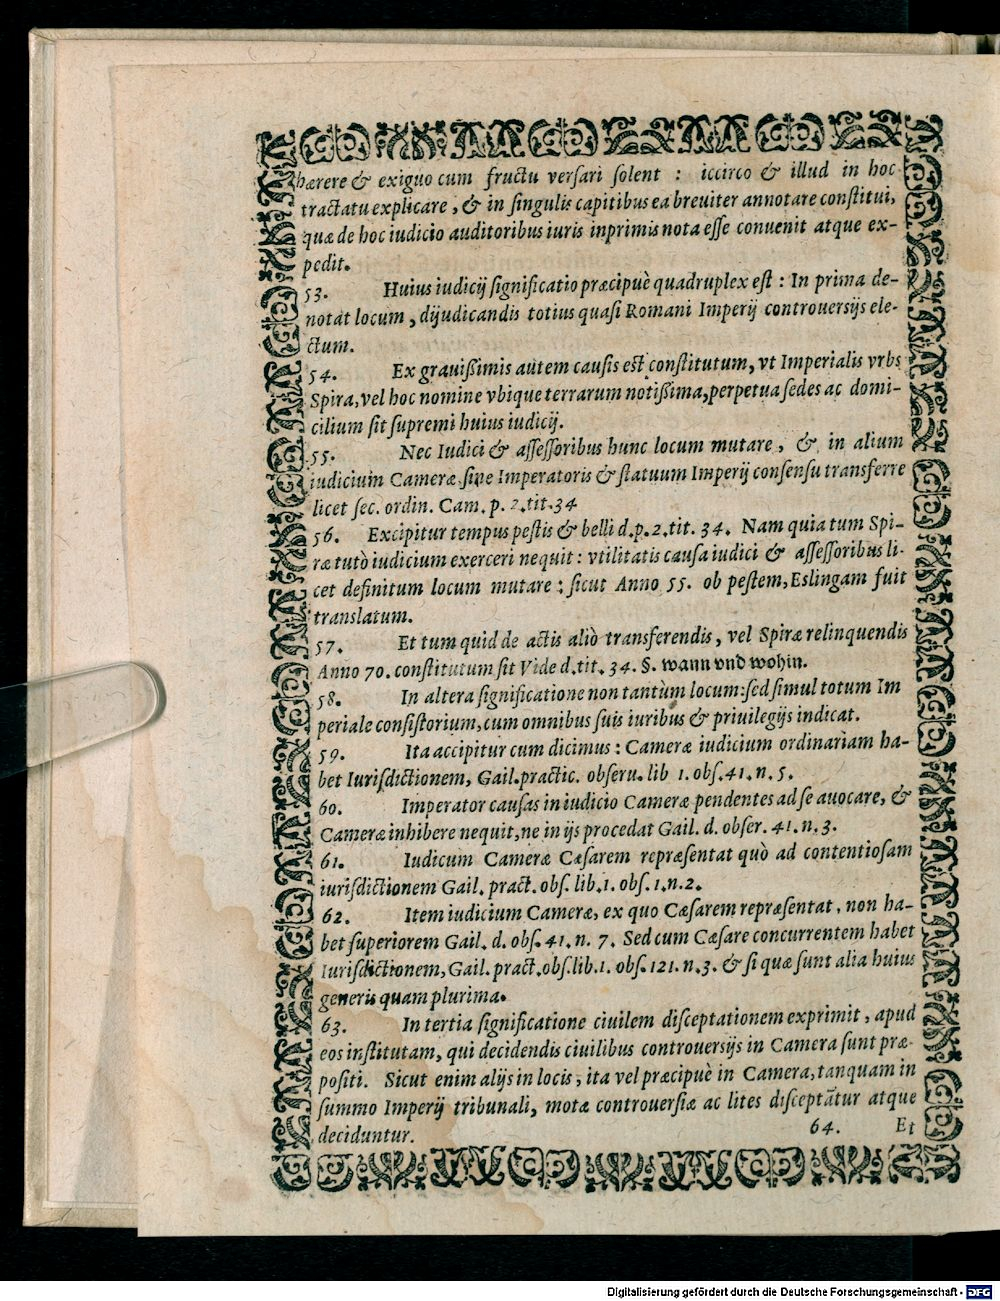 hærere & exiguo cum fructu versari solent : iccirco & illud in hoc
tractatu explicare, & in singulis capitibus ea breuiter annotare constitui,
quæ de hoc iudicio auditoribus iuris inprimis nota esse conuenit atque ex-
pedit.
53. Huius iudicij significatio præcipuè quadruplex est : In prima de-
notat locum, dijudicandis totius quasi Romani Imperij controuersijs ele-
ctum.
54. Ex grauißimis autem causis est constitutum, vt Imperialis vrbs
Spira, vel hoc nomine vbique terrarum notißima, perpetua sedes ac domi-
cilium sit supremi huius iudicij.
55. Nec Iudici & assessoribus hunc locum mutare, & in alium
iudicium Cameræ sine Imperatoris & statuum Imperij consensu transferre
licet sec. ordin. Cam. p. 2. tit. 34
56. Excipitur tempus pestis & belli d. p. 2. tit. 34. Nam quia tum Spi-
ræ tutò iudicium exerceri nequit : vtilitatis causa iudici & assessoribus li-
cet definitum locum mutare : sicut Anno 55. ob pestem, Eslingam fuit
translatum.
57. Et tum quid de actis aliò transferendis, vel Spiræ relinquendis
Anno 70. constitutum sit Vide d. tit. 34. §. wann vnd wohin.
58. In altera significatione non tantùm locum: sed simul totum Im
periale consistorium, cum omnibus suis iuribus & priuilegijs indicat.
59. Ita accipitur cum dicimus : Cameræ iudicium ordinariam ha-
bet Iurisdictionem, Gail. practic. obseru. lib 1. obs. 41. n. 5.
60. Imperator causas in iudicio Cameræ pendentes ad se auocare, &
Cameræ inhibere nequit, ne in ijs procedat Gail. d. obser. 41. n. 3.
61. Iudicum Cameræ Cæsarem repræsentat quò ad contentiosam
iurisdictionem Gail. pract. obs. lib. 1. obs. 1. n. 2.
62. Item iudicium Cameræ, ex quo Cæsarem repræsentat, non ha-
bet superiorem Gail. d. obs. 41. n. 7. Sed cum Cæsare concurrentem habet
Iurisdictionem, Gail. pract. obs. lib. 1. obs. 121. n. 3. & si quæ sunt alia huius
generis quam plurima.
63. In tertia significatione ciuilem disceptationem exprimit, apud
eos institutam, qui decidendis ciuilibus controuersijs in Camera sunt præ-
positi. Sicut enim alijs in locis, ita vel præcipuè in Camera, tanquam in
summo Imperij tribunali, motæ controuersiæ ac lites disceptãtur atque
deciduntur.
64. Et
Digitalisierung gefördert durch die Deutsche Forschungsgemeinschaft - DFG